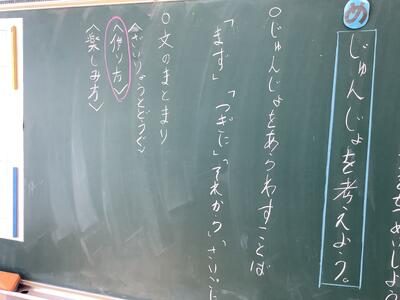 せつめいしよう
め
じゅんじょを考えよう。
○じゅんじょをあらわすことば
「まず」「つぎに」、「それから」、「さいごに
○文のまとまり
〈ざいりょうとどうぐ〉
〈作り方〉
〈楽しみ方〉